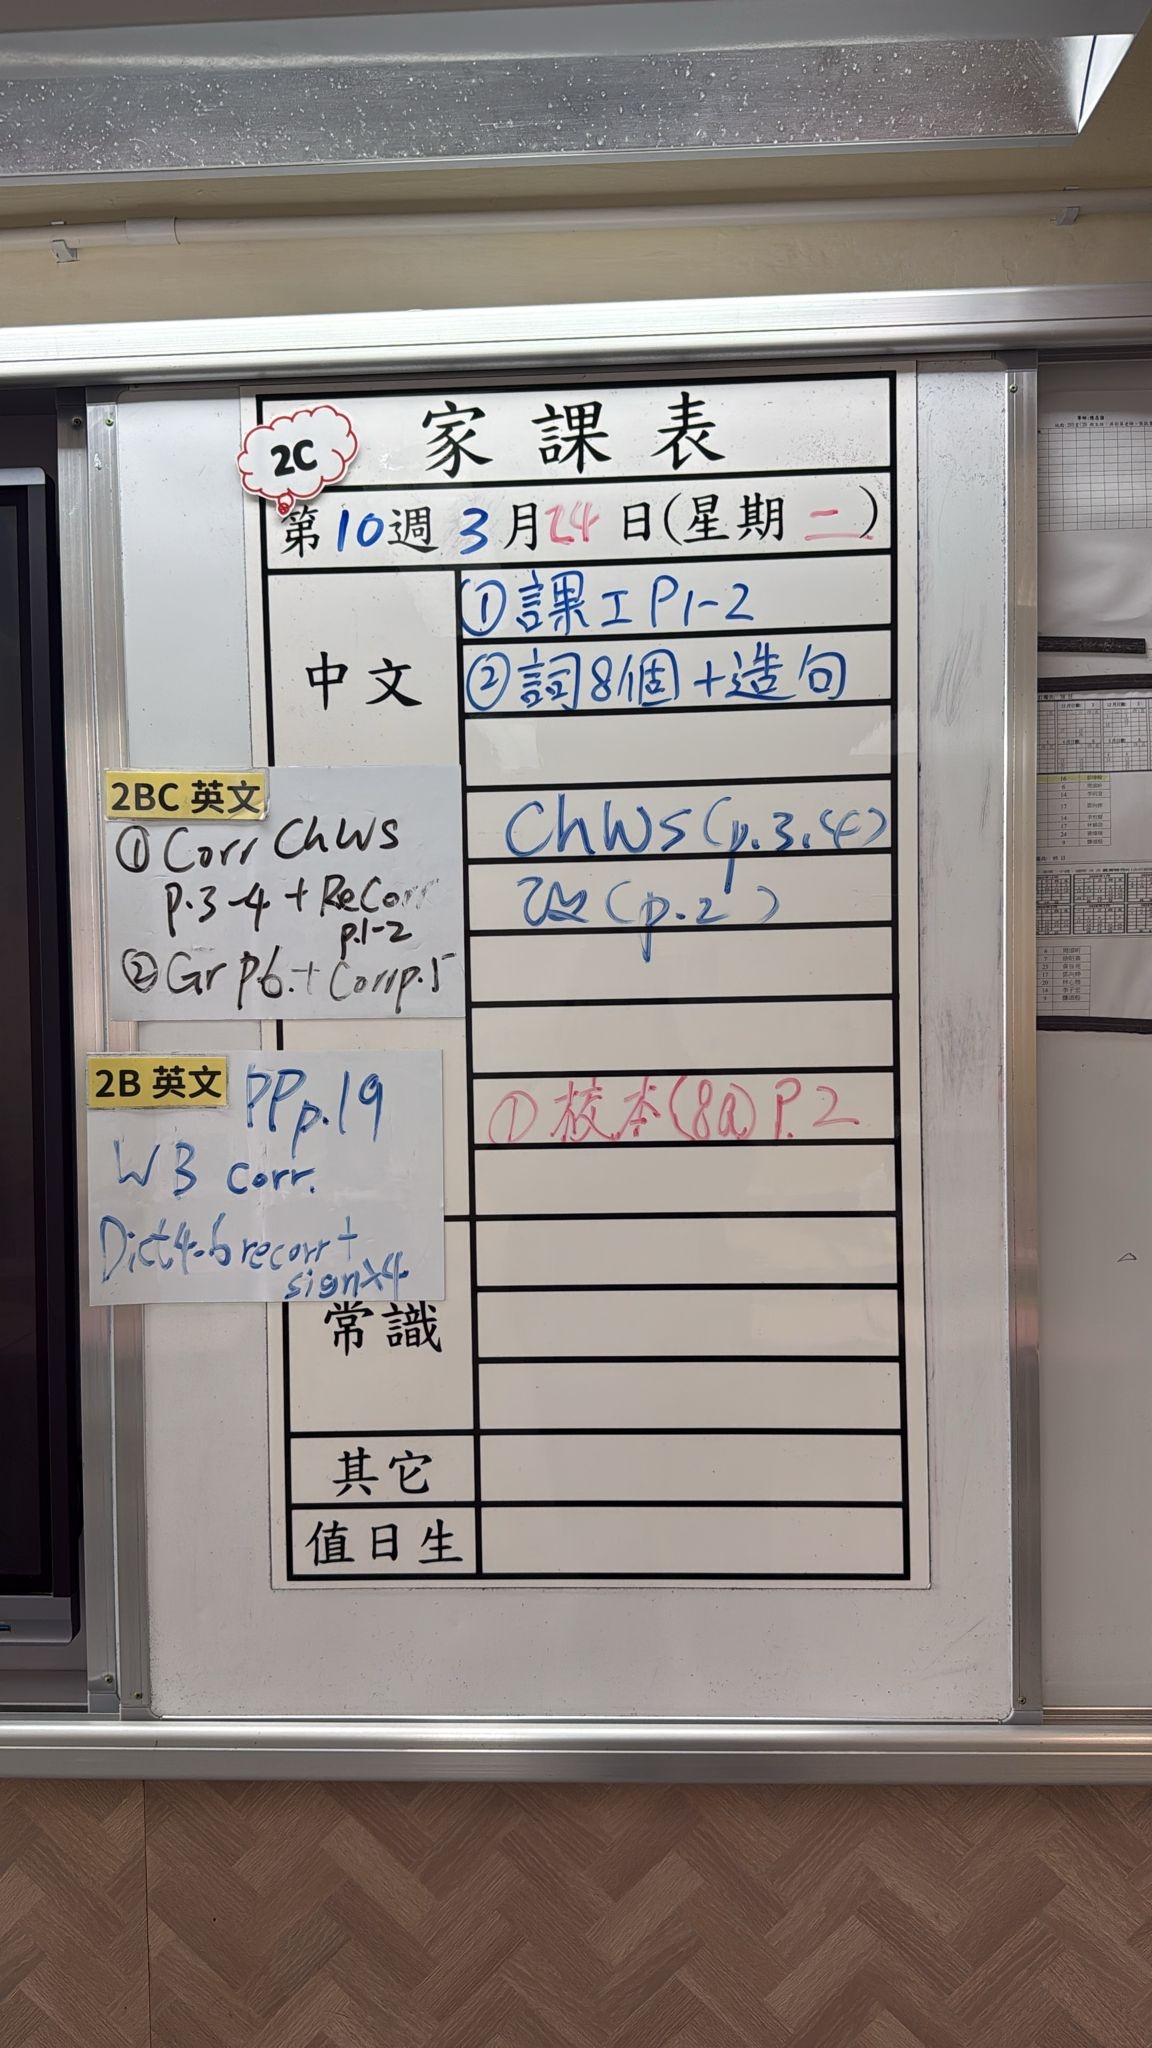 家課表
2C
第10週3月24日(星期二)
中文
①課工P1-2
②詞8個+造句
2BC 英文
①Corr ChWs
p.3-4 + ReCorr
p.1-2
②Gr p6.+ Corrp.5
ChWs(p.3.4)
改(p.2)
2B 英文
PPp.19
WB corr.
Dict4.6 recorr+
sign×4
①校本(8a)P.2
常識
其它
值日生